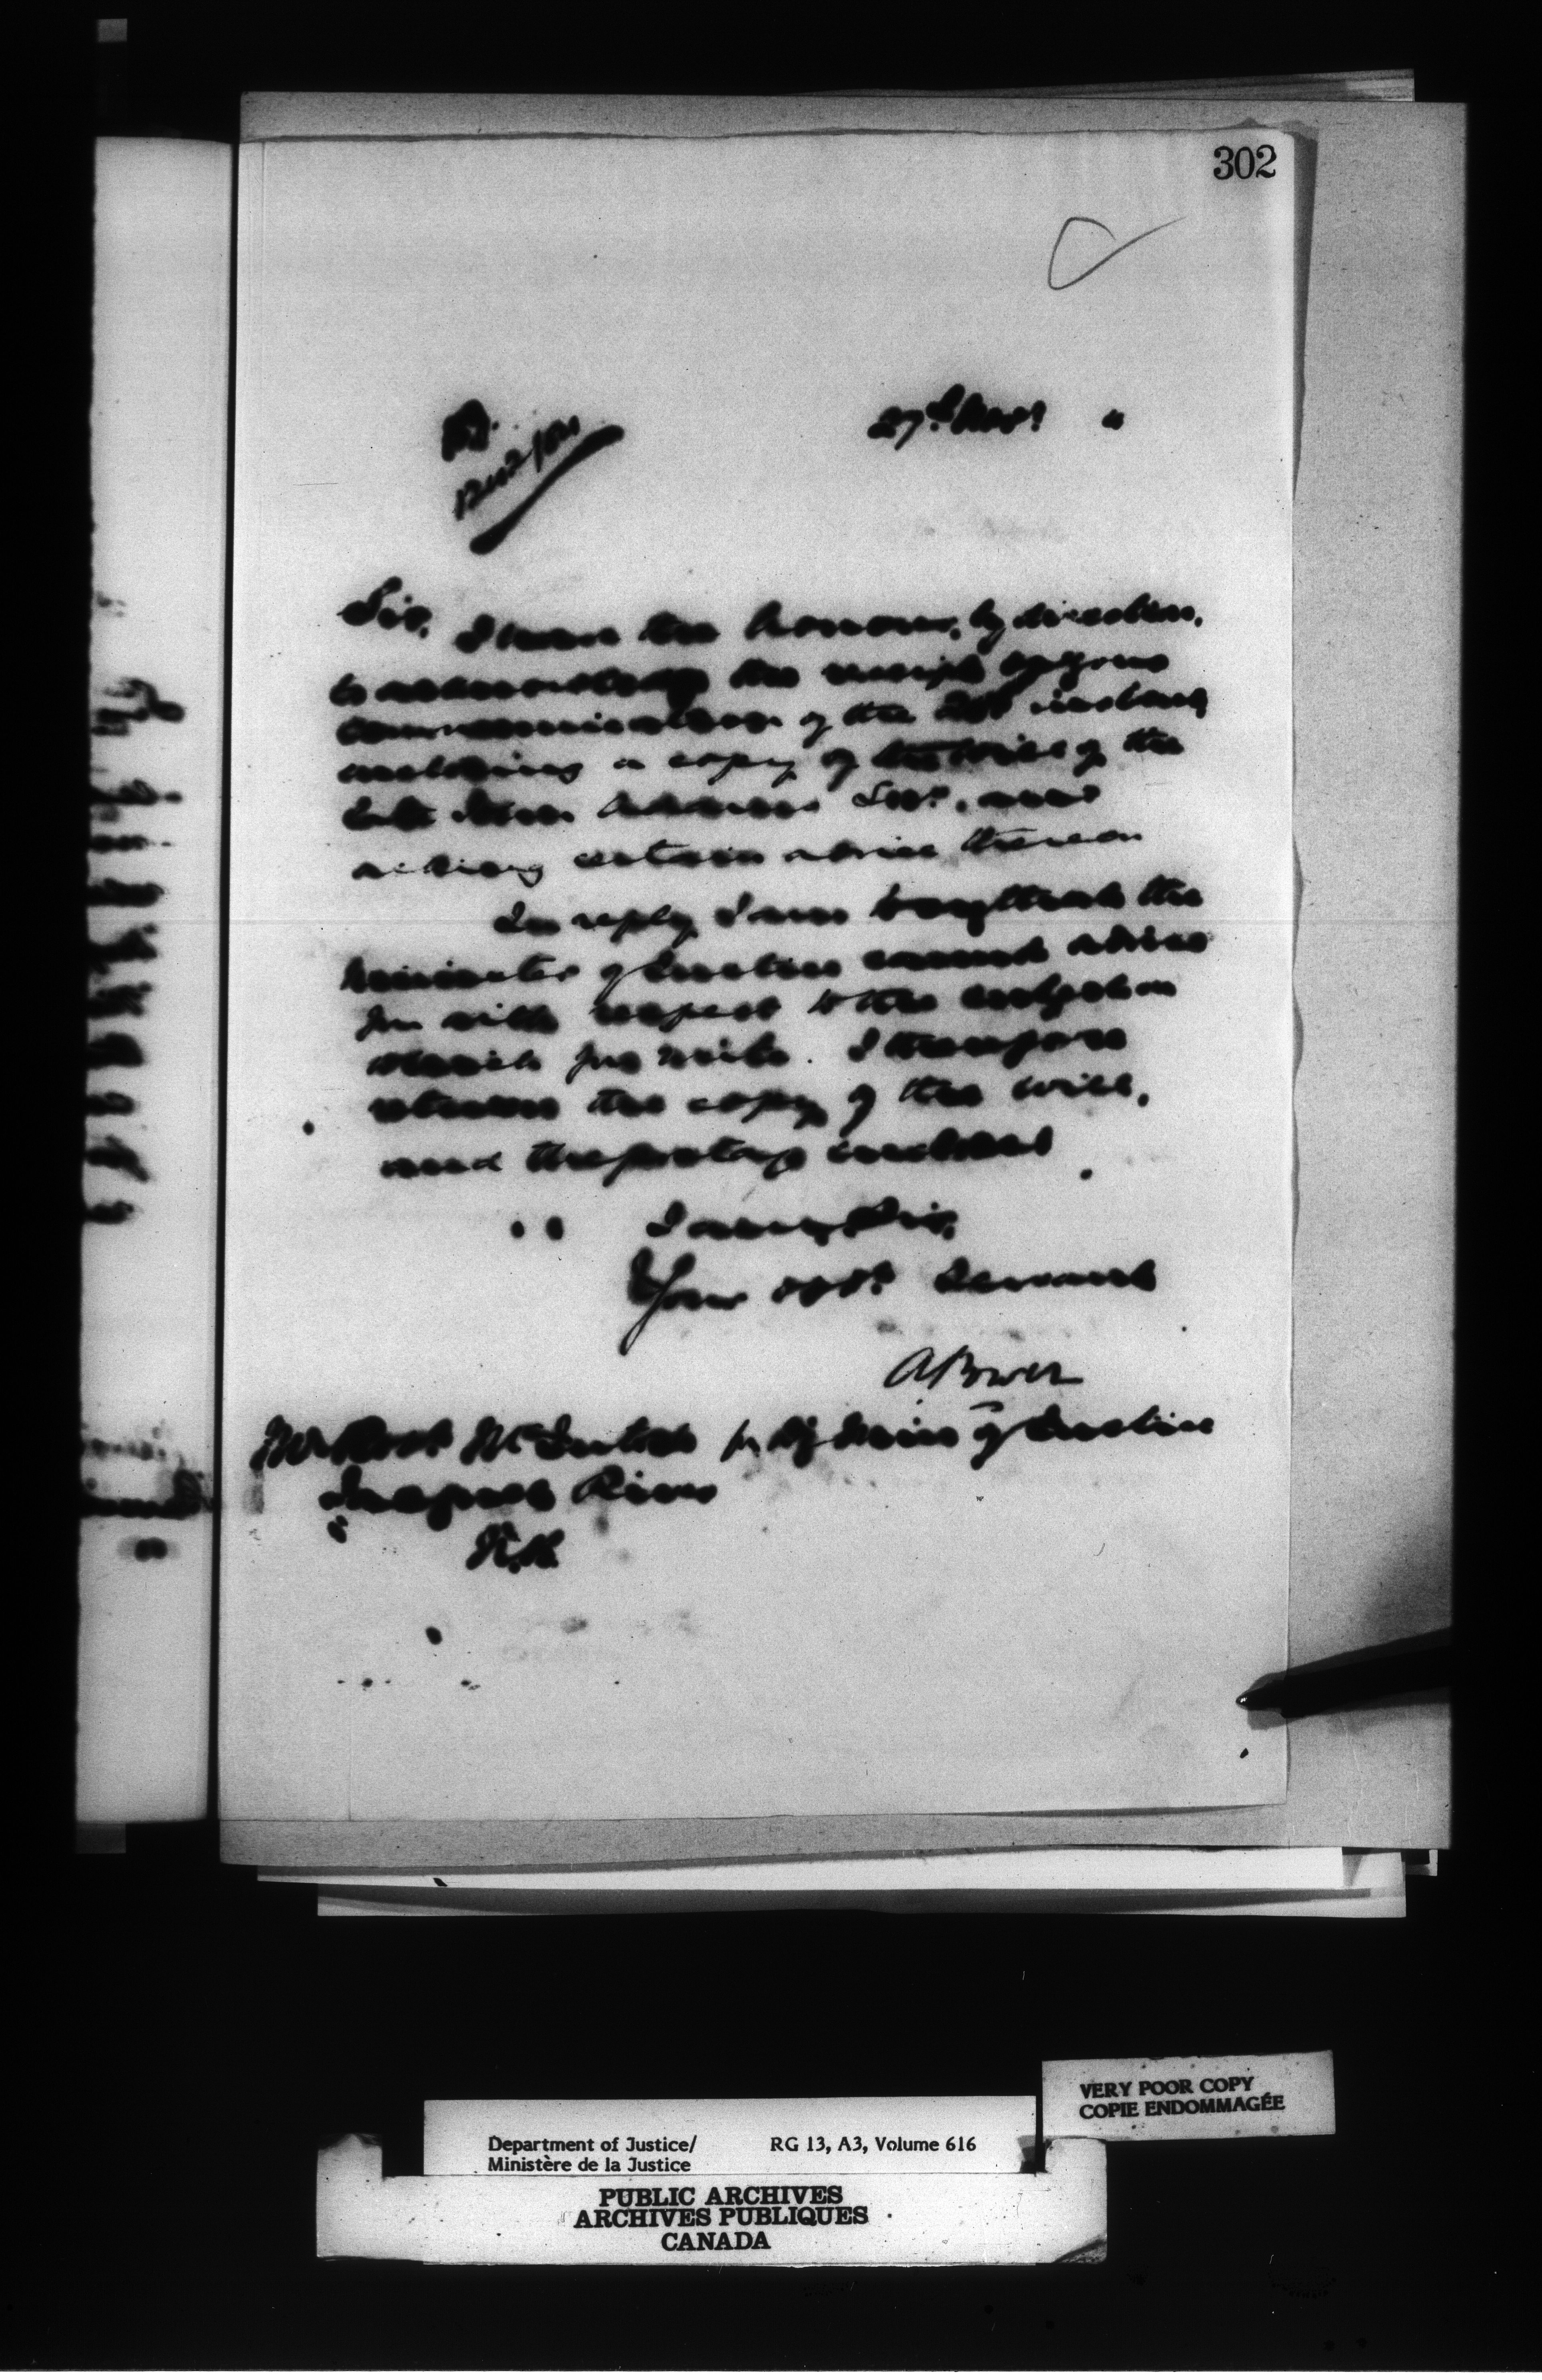 302
27th Novr "
Sir,
I have the honour, by direction,
to acknowledge the receipt of your
communication of the instant
enclosing a copy of the will of the
late Adams Senr, and
asking certain advice thereon
In reply I am to say that the
Minister of Justice cannot advise
you with respect to the subject on
which you write. I therefore
return the copy of the will,
and the postage enclosed
I am, Sir,
Your obdt Servant
A Power
for Dy Minr of Justice
Mr Robt
Jacquet River
N.B.
VERY POOR COPY
COPIE ENDOMMAGÉE
Department of Justice/ RG 13, A3, Volume 616
Ministère de la Justice
PUBLIC ARCHIVES
ARCHIVES PUBLIQUES
CANADA